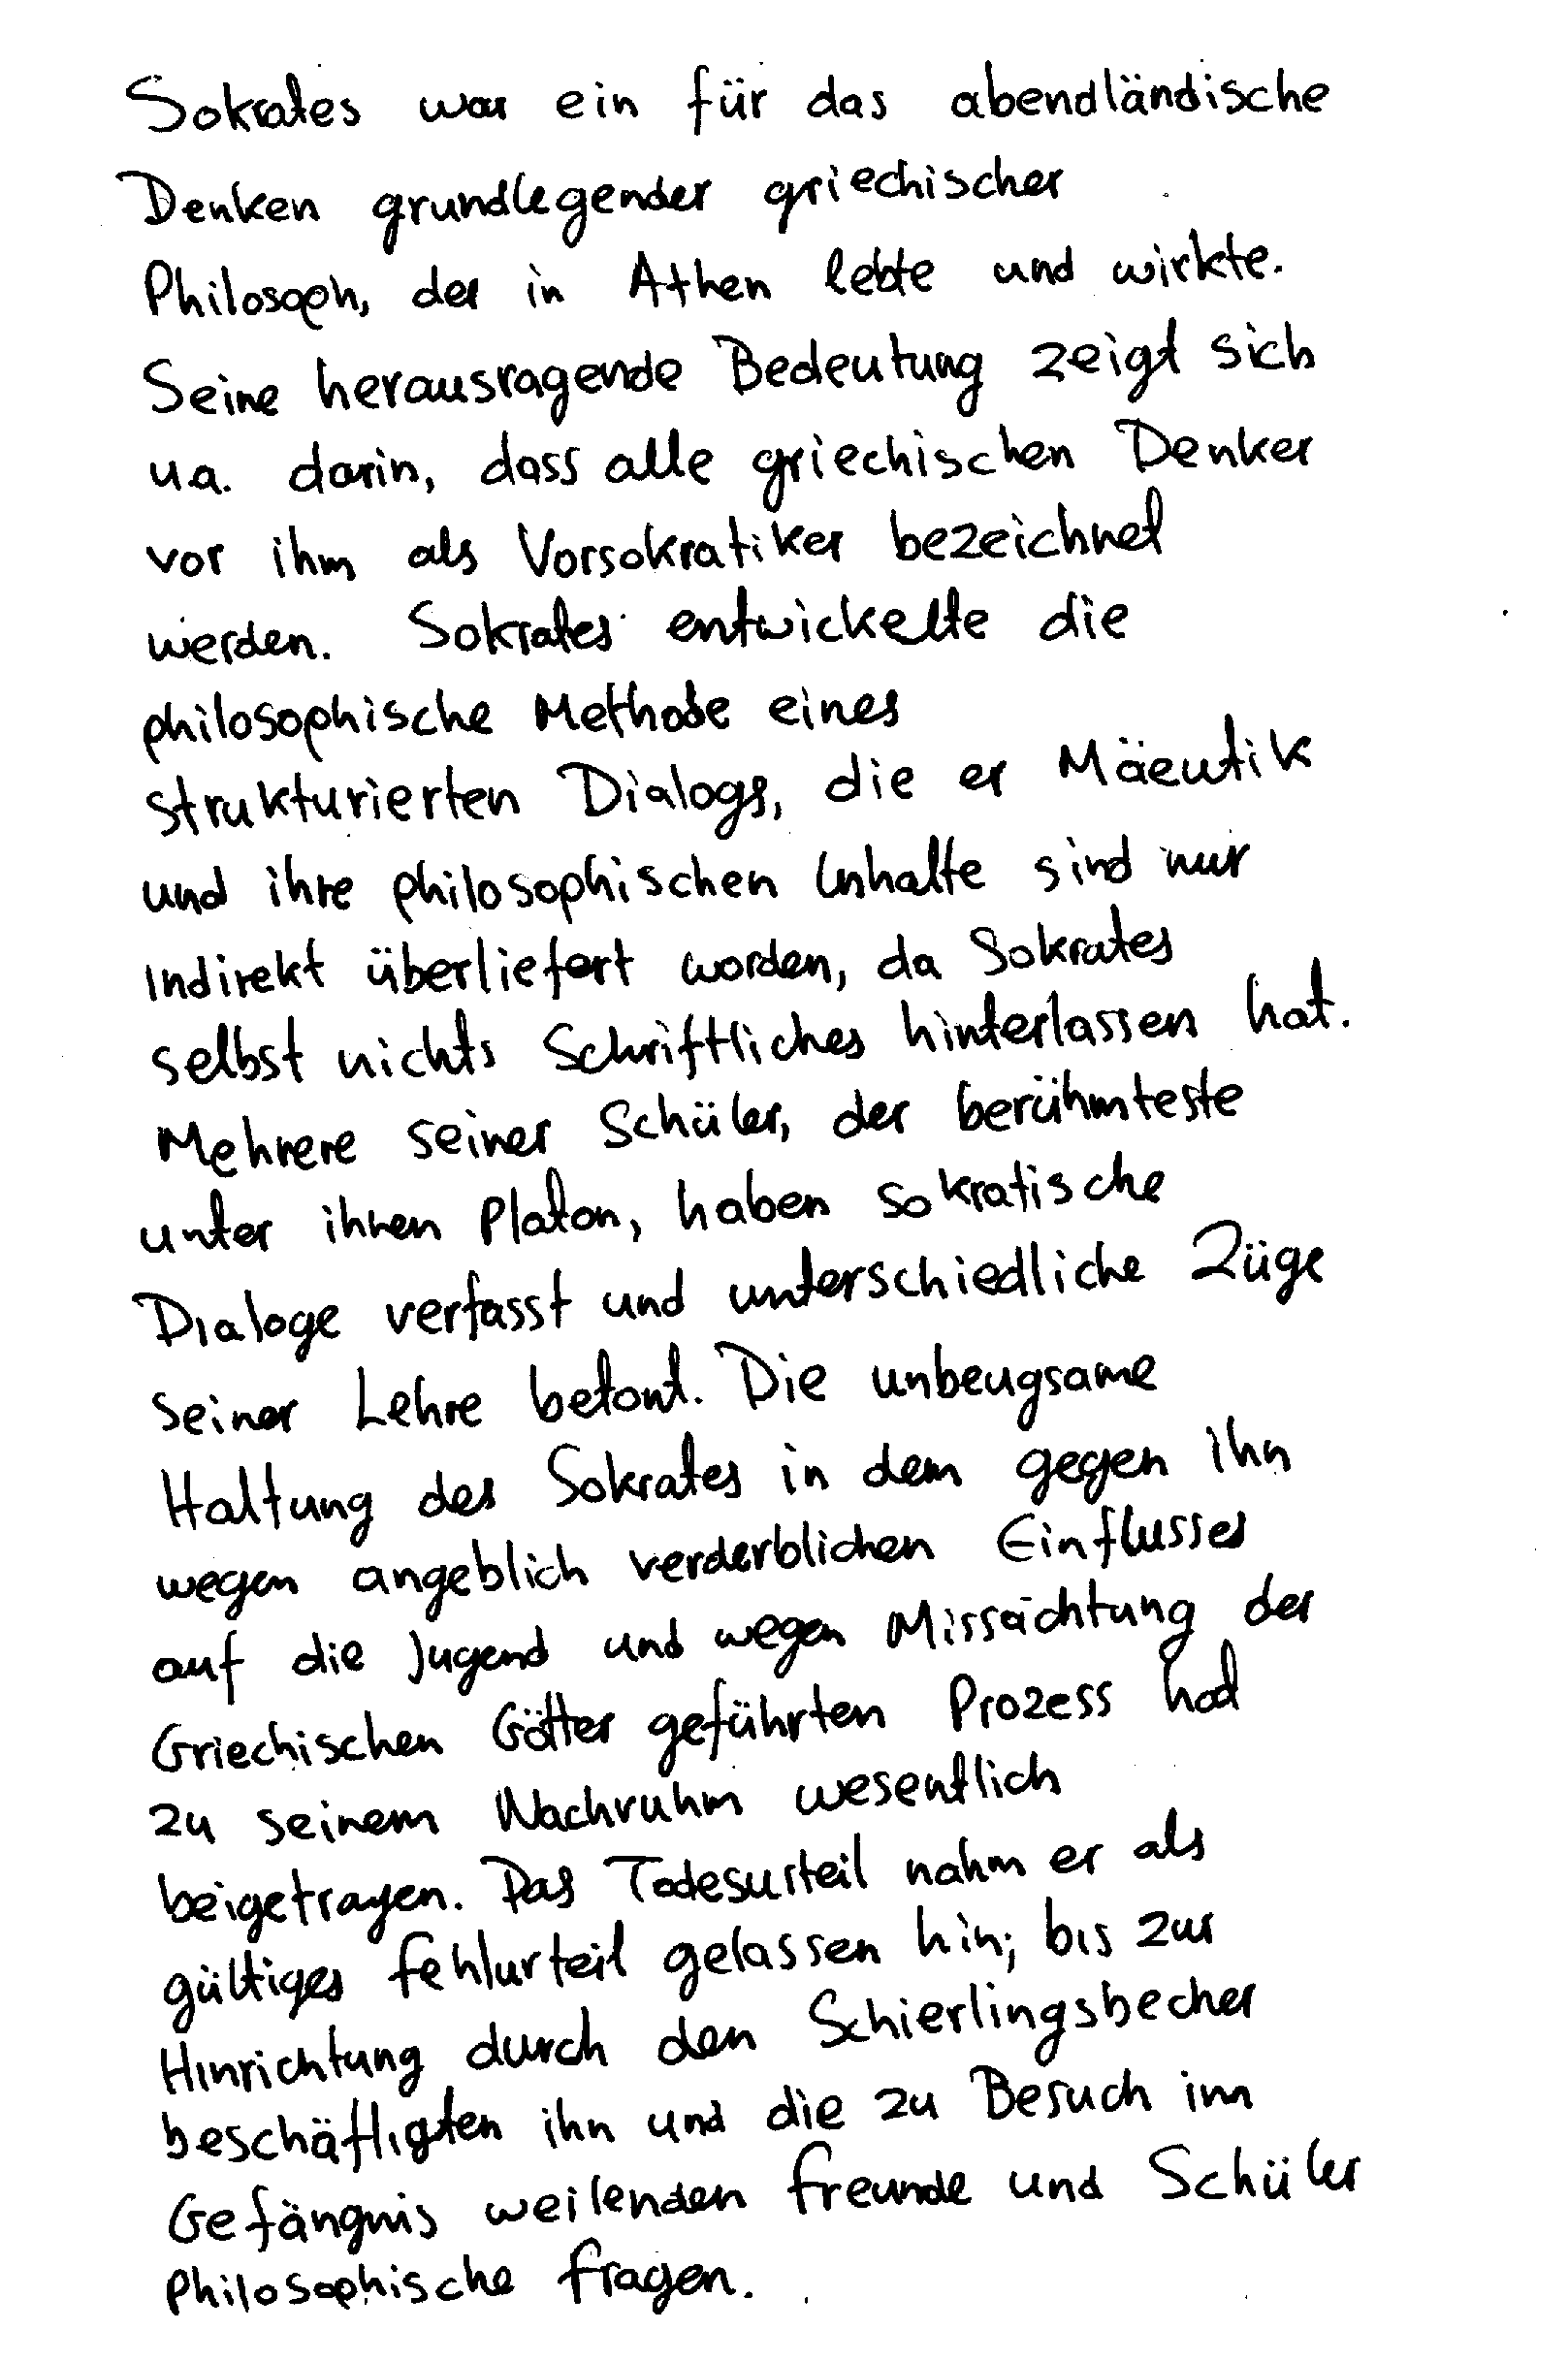 Sokrates war ein für das abendländische
Denken grundlegender griechischer
Philosoph, der in Athen lebte und wirkte.
Seine herausragende Bedeutung zeigt sich
u.a. darin, dass alle griechischen Denker
vor ihm als Vorsokratiker bezeichnet
werden. Sokrates entwickelte die
philosophische Methode eines
strukturierten Dialogs, die er Mäeutik
und ihre philosophischen Inhalte sind nur
Indirekt überliefert worden, da Sokrates
selbst nichts Schriftliches hinterlassen hat.
Mehrere seiner Schüler, der berühmteste
unter ihnen Platon, haben sokratische
Dialoge verfasst und unterschiedliche Züge
seiner Lehre betont. Die unbeugsame
Haltung des Sokrates in dem gegen ihn
wegen angeblich verderblichen Einflusses
auf die Jugend und wegen Missachtung der
Griechischen Götter geführten Prozess hat
zu seinem Nachruhm wesentlich
beigetragen. Das Todesurteil nahm er als
gültiges Fehlurteil gelassen hin; bis zur
Hinrichtung durch den Schierlingsbecher
beschäftigten ihn und die zu Besuch im
Gefängnis weilenden Freunde und Schüler
Philosophische Fragen.